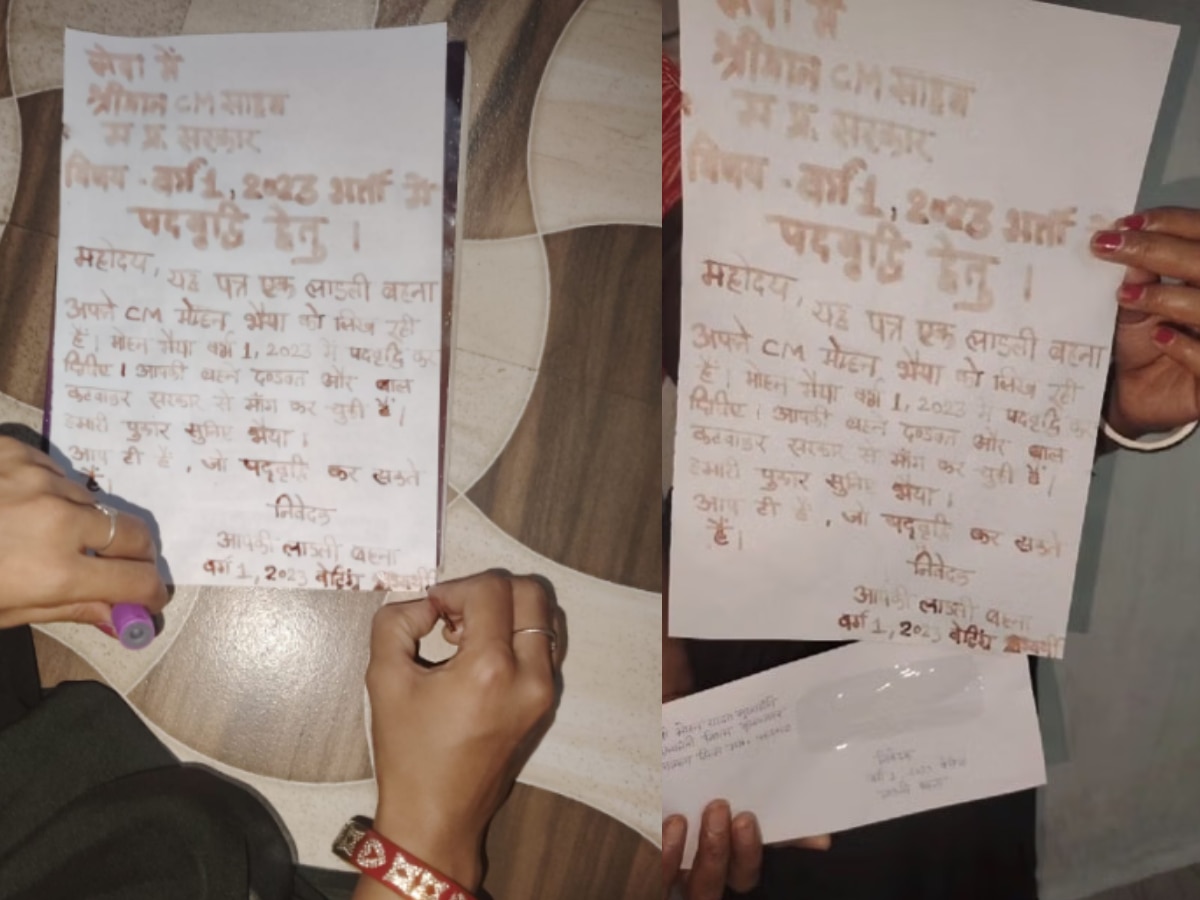 सेवा में
श्रीमान CM साहब
म.प्र. सरकार
विषय - वर्ग 1, 2023 भर्ती में
पदवृद्धि हेतु ।
महोदय,
यह पत्र एक लाडली बहना
अपने CM मोहन भैया को लिख रही
हैं। मोहन भैया वर्ग 1, 2023 में पदवृद्धि कर
दीजिए। आपकी बहन दण्डवत और बाल
कटवाकर सरकार से माँग कर चुकी हैं।
हमारी पुकार सुनिए भैया।
आप ही हैं, जो पदवृद्धि कर सकते
हैं।
निवेदक
आपकी लाडली बहना
वर्ग 1, 2023 वेटिंग अभ्यर्थी
सेवा में
श्रीमान CM साहब
म.प्र. सरकार
विषय - वर्ग 1, 2023 भर्ती में
पदवृद्धि हेतु ।
महोदय,
यह पत्र एक लाडली बहना
अपने CM मोहन भैया को लिख रही
हैं। मोहन भैया वर्ग 1, 2023 में पदवृद्धि कर
दीजिए। आपकी बहन दण्डवत और बाल
कटवाकर सरकार से माँग कर चुकी हैं।
हमारी पुकार सुनिए भैया।
आप ही हैं, जो पदवृद्धि कर सकते
हैं।
निवेदक
आपकी लाडली बहना
वर्ग 1, 2023 वेटिंग अभ्यर्थी
मोहन यादव
निवेदक
वर्ग 1, 2023 वेटिंग